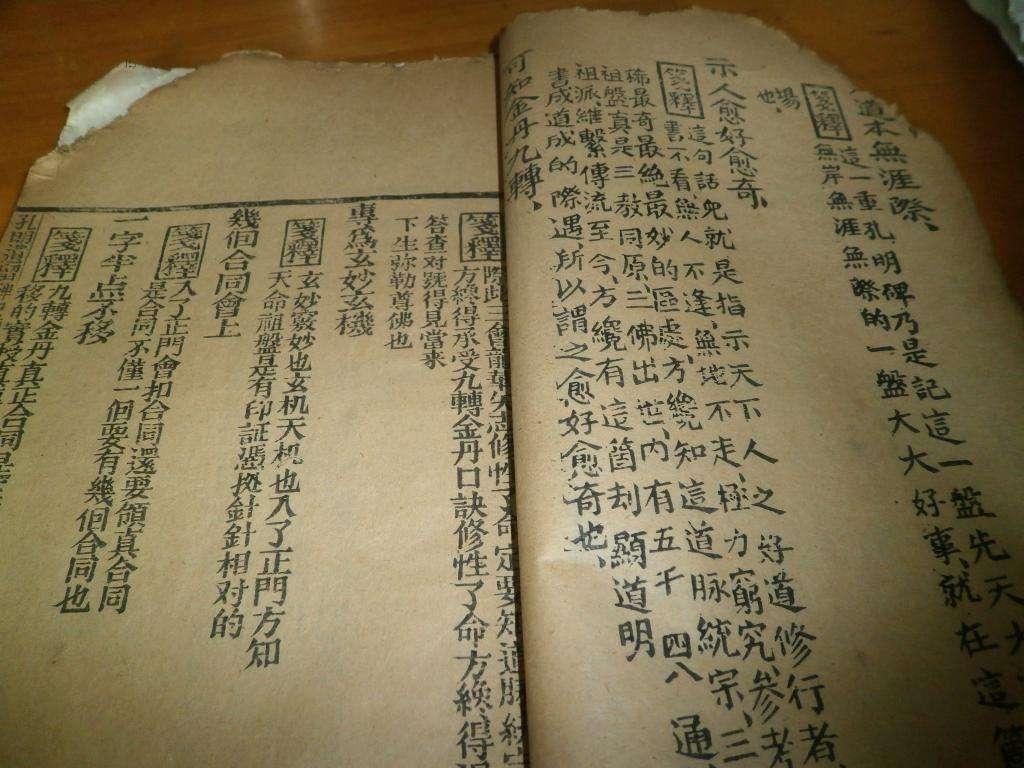 道本無涯際、
箋釋 這一重孔明碑乃是記這一盤先天大
無岸無涯無際的一盤大大好事、就在這箇
場也、
示人愈好愈奇、
箋釋 這句話兒就是指示天下人之好道修行者、
書不看無人不逢、無地不走、極力窮究、參考
稀最奇最絶最妙的區處、方纔知這道脉統宗、三
祖盤真是三教同原、三佛出世、内有五千四八
祖派、維繫傳流至今、方纔有這箇刻顯道明
書成道成的際遇、所以謂之愈好愈奇也、
可知金丹九轉、
箋釋 際此三會龍華失志修性了命定要知道脉統
方總得承受九轉金丹口訣修性了命方總得
答查对號得見當來
下生弥勒尊佛也
專為玄妙玄機
箋釋 玄妙竅妙也玄机天机也入了正門方知
天命祖盤是有印証憑拠針針相对的
幾個合同會上
箋釋 入了正門會扣合同還要領真合同
是合同不僅一個要有幾個合同也
一字半点不移
箋釋 九轉金丹真正合同是
移的實授真
孔明